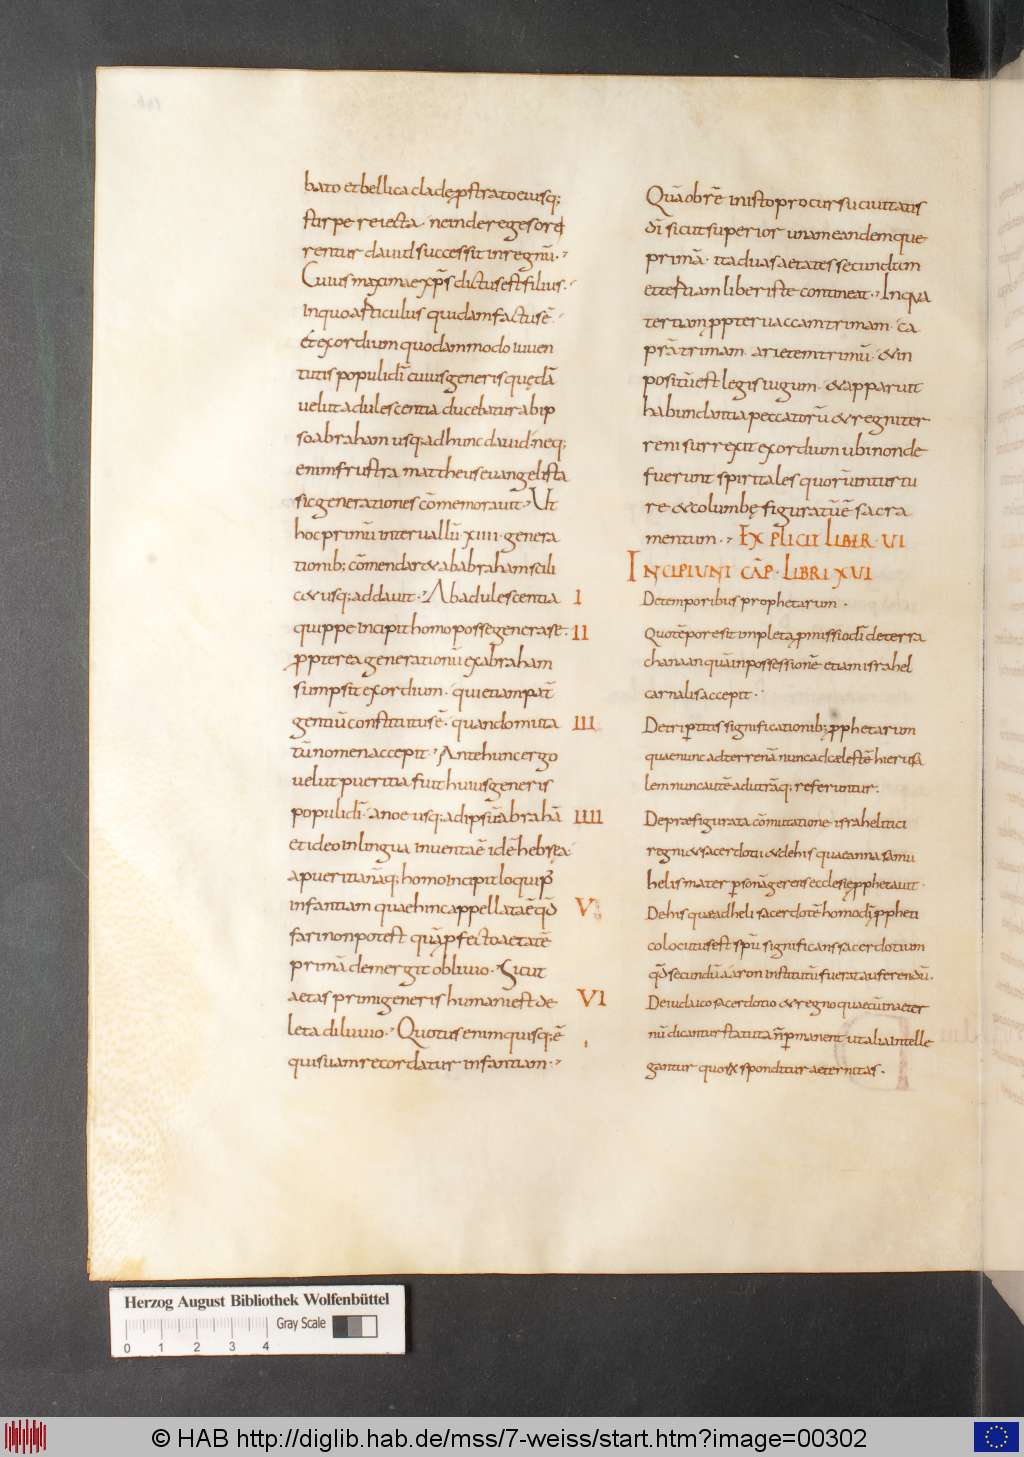 bato et bellica cladę pstrato eiusq;
stirpe reiecta · ne inde reges ore
rentur dauid successit in regnū ·
Cuius maxima ex p̄s dictus est filius ·
In quo articulus quidam factus ē ·
et exordium quodammodo iuuen
tutis populi dī cuius generis quędā
uelut adulescentia ducebatur ab ip
so abraham usq; ad hunc dauid · neq;
enim frustra mattheus euangelista
sic generationes cōmemorauit · Ut
hoc primū interuallū · xiiii · genera
tionib; cōmendaret ab abraham scili
cet usq; ad dauit · Ab adulescentia
quippe incipit homo posse generase ·
ppterea generationū ex abraham
sumpsit exordium · qui etiam pat̄
gentiū constitutus ē · quando muta
tū nomen accepit · Ante hunc ergo
uelut pueritia fuit huius generis
populi dī · a noe usq; ad ipsū abrahā
et ideo in lingua inuenta ē id ē hebrea
a pueritia nāq; homo incipit loqui p
infantiam quae hinc appellata ē qđ
fari non potest quā pfecto aetatē
primā demergit obliuio · Sicut
aetas primi generis humani est de
leta diluuio · Quotus enim quisq; ē
qui suam recordatur infantiam ·
Quā obrē in isto procursu ciuitatis
dī sicut superior unam eandemque
primā · ita duas aetates secundam
et tertiam liber iste contineat · In qua
tertiam ppter uaccam trimam · ca
prā trimam · arietem trimū · & in
positū est legis iugum · & apparuit
habundantia peccatorū & regni ter
reni surrexit exordium ubi non de
fuerunt spiritales quorū in turtu
re & columbę figuratū ē sacra
mentum · EXPLICIT LIBER · VI
INCIPIUNT CĀP · LIBRI XVI
I De temporibus prophetarum ·
II Quo tēpore sit impleta pmissio dī de terra
chanaan quā in possessionē etiam israhel
carnalis accepit ·
III De tripertitis significationib; pphetarum
quae nunc ad terrenā nunc ad cęlestē hierusa
lem nunc autē ad utrāq; referuntur ·
IIII De praefigurata cōmutatione israhelitici
regni & sacerdotii & de his quae anna samu
helis mater personā gerens ecclesię pphetauit ·
V De his quae ad heli sacerdotē homo dī ppheti
co locutus est spū significans sacerdotium
qđ secundū aaron institutū fuerat auferendū ·
VI De iudaico sacerdotio & regno quae cū in aeter
nū dicantur statuta n̄ permanent ut alia intelle
gantur quorū sponditur aeternitas ·
Herzog August Bibliothek Wolfenbüttel
Gray Scale
0 1 2 3 4
© HAB http://diglib.hab.de/mss/7-weiss/start.htm?image=00302